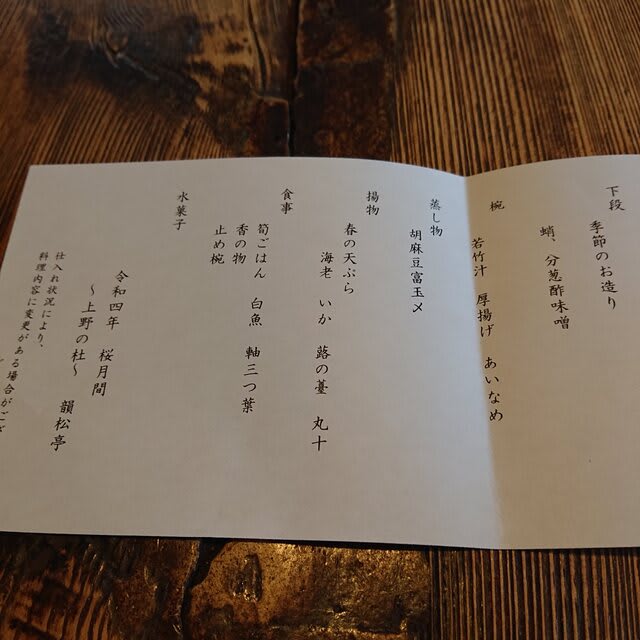 下段
季節のお造り
蛸、分葱酢味噌
椀
若竹汁 厚揚げ あいなめ
蒸し物
胡麻豆富玉〆
揚物
春の天ぷら
海老 いか 蕗の薹 丸十
食事
筍ごはん 白魚 軸三つ葉
香の物
止め椀
水菓子
令和四年 桜月間
～上野の杜～ 韻松亭
仕入れ状況により、
料理内容に変更がある場合がござ